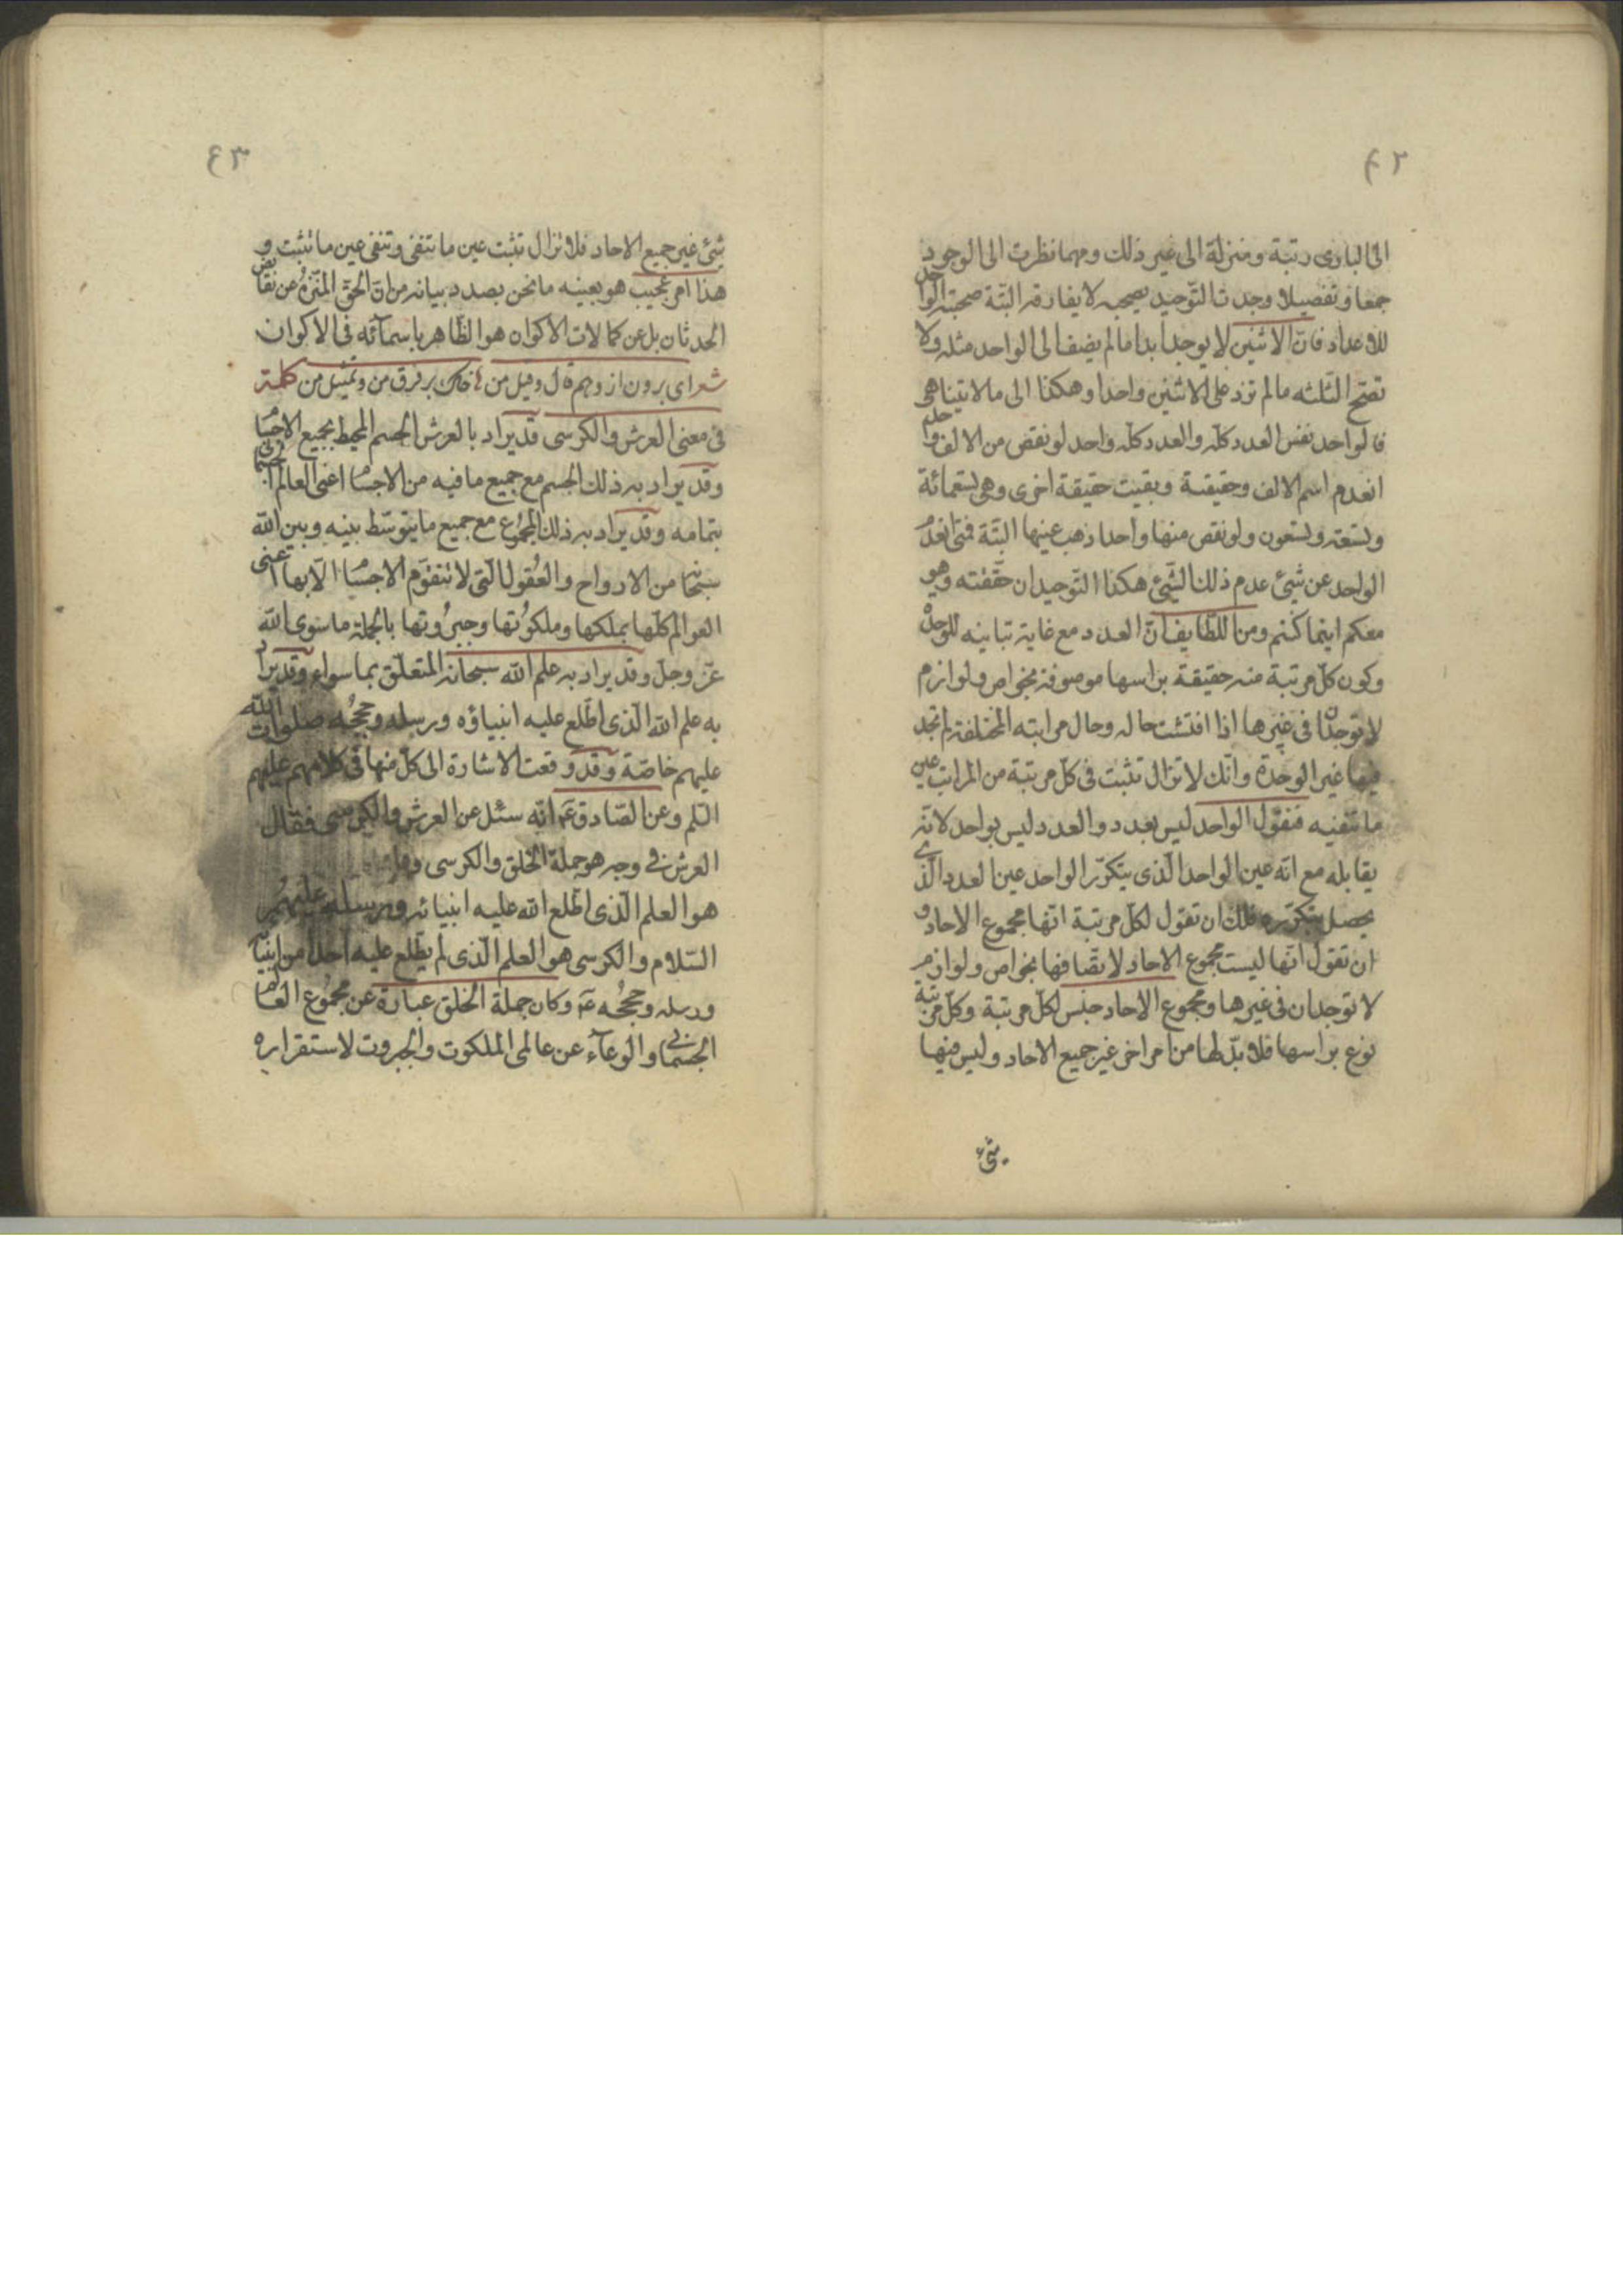 ٤٢
الى البارى رتبة ومنزلة الى غير ذلك ومهما نظرت الى الوجود
جمعا وتفصيلا وجدت التّوحيد يصحبه لا يفارقه البتّة صحبة الواحد
للاعداد فانّ الاثنين لا يوجد ابدا ما لم يضف الى الواحد مثله ولا
تصحّ الثّلثه ما لم تزد على الاثنين واحدا وهكذا الى ما لا يتناهى
فالواحد نفس العدد كلّه والعدد كلّه واحد لو نقص من الالف واحد
انعدم اسم الالف وحقيقته وبقيت حقيقة اخرى وهى تسعمائة
وتسعة وتسعون ولو نقص منها واحدا ذهب عينها البتّة فمتى انعدم
الواحد عن شيئ عدم ذلك الشّيئ هكذا التّوحيد ان حقّقته وهو
معكم اينما كنتم ومن اللطّايف انّ العدد مع غاية تباينه للوحدة
وكون كلّ مرتبة منه حقيقة براسها موصوفة بخواص ولوازم
لا توجدان فى غيرها اذا افتشت حاله وحال مراتبه المختلفة لم تجد
فيها غير الوحدة وانّك لا تزال تثبت فى كلّ مرتبة من المراتب عين
ما تنفيه فتقول الواحد ليس بعدد والعدد ليس بواحد لانّه
يقابله مع انّه عين الواحد الّذى يتكرّر الواحد عين العدد الّذى
يحصل بتكرّره فلك ان تقول لكلّ مرتبة انّها مجموع الاحاد و
ان تقول انّها ليست مجموع الاحاد لاتّصافها بخواص ولوازم
لا توجدان فى غيرها ومجموع الاحاد جنس لكلّ مرتبة وكلّ مرتبة
نوع براسها فلا بدّ لها من امر اخر غير جميع الاحاد وليس فيها
شيء
٤٣
شيئ غير جميع الاحاد فلا تزال تثبت عين ما تنفى وتنفى عين ما تثبت و
هذا امر عجيب هو بعينه ما نحن بصدد بيانه من انّ الحقّ المنزّه عن نقائص
الحدثان بل عن كمالات الاكوان هو الظّاهر باسمآئه فى الاكوان
شعر اى برون از وهم و قال و قيل من خاك بر فرق من و تمثيل من كلمة
فى معنى العرش والكرسى قد يراد بالعرش الجسم المحيط بجميع الاجسام
وقد يراد به ذلك الجسم مع جميع ما فيه من الاجسام اعنى العالم الجسمانى
بتمامه وقد يراد به ذلك المجموع مع جميع ما يتوسّط بينه وبين الله
سبحانه من الارواح والعقول الّتى لا تتقوّم الاجسام الّا بها اعنى
العوالم كلّها بملكها وملكوتها وجبروتها بالجملة ما سوى الله
عزّ وجلّ وقد يراد به علم الله سبحانه المتعلّق بما سواه وقد يراد
به علم الله الّذى اطّلع عليه انبياؤه ورسله وحججه صلوات الله
عليهم خاصّة وقد وقعت الاشارة الى كلّ منها فى كلامهم عليهم
السّلم وعن الصّادق عم انّه سئل عن العرش والكرسى فقال
العرش فى وجه هو جملة الخلق والكرسى
هو العلم الّذى اطّلع الله عليه انبيائه ورسله عليهم
السّلام والكرسى هو العلم الّذى لم يطّلع عليه احدا من انبيآئه
ورسله وحججه عم وكان جملة الخلق عبارة عن مجموع العالم
الجسمانى والوعآء عن عالمى الملكوت والجبروت لاستقراره